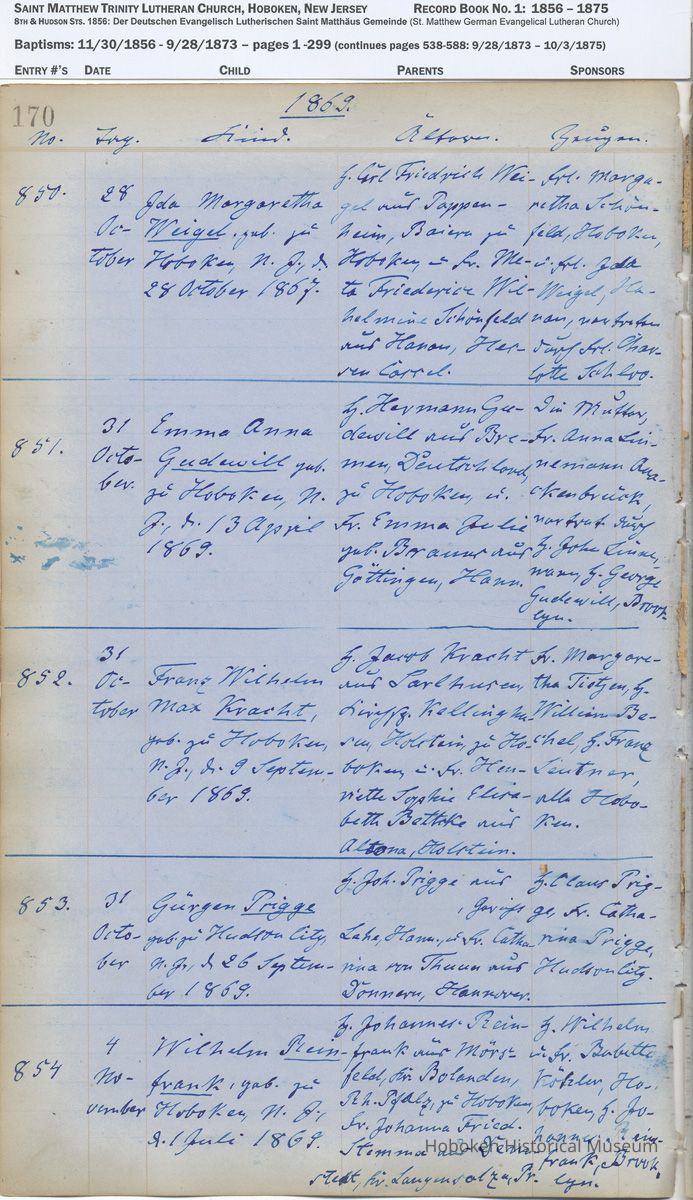 SAINT MATTHEW TRINITY LUTHERAN CHURCH, HOBOKEN, NEW JERSEY RECORD BOOK NO. 1: 1856 – 1875
8TH & HUDSON STS. 1856: Der Deutschen Evangelisch Lutherischen Saint Matthäus Gemeinde (St. Matthew German Evangelical Lutheran Church)
Baptisms: 11/30/1856 - 9/28/1873 – pages 1 -299 (continues pages 538-588: 9/28/1873 – 10/3/1875)
ENTRY #'S DATE CHILD PARENTS SPONSORS
170
1869.
No. Tag. Kind. Ältern. Zeugen.
850.
28
Oc-
tober
Ida Margaretha
Weigel, geb. zu
Hoboken, N. J., d.
28 October 1867.
H. Carl Friedrich Wei-
gel aus Pappen-
heim, Baiern zu
Hoboken, u. Fr. Me-
ta Friederice Wil-
helmine Schönfeld
aus Hanau, Hes-
sen Cassel.
Frl. Marga-
retha Schön-
feld, Hoboken,
u. Frl. Ida
Weigel, Ha-
nau, vertreten
durch Frl. Char-
lotte
851.
31
Octo-
ber.
Emma Anna
Gudewill geb.
zu Hoboken, N.
J., d. 13 April
1869.
H. Hermann Gu-
dewill aus Bre-
men, Deutschland,
zu Hoboken, u.
Fr. Emma Julie
geb. Brauns aus
Göttingen, Hann.
Die Mutter,
Fr. Anna Lin-
nemann Qua-
ckenbrück,
vertret. durch
H. John Linne-
mann, H. George
Gudewill, Brook-
lyn.
852.
31
Oc-
tober
Franz Wilhelm
Max Kracht,
geb. zu Hoboken,
N. J., d. 9 Septem-
ber 1869.
H. Jacob Kracht
aus Sarlhusen,
Kirchsp. Kellinghu-
sen, Holstein, zu Ho-
boken, u. Fr. Hen-
riette Sophie Elisa-
beth Bathke aus
Altona, Holstein.
Fr. Margare-
tha Tietzen, H.
William Be-
chel, H. Franz
Leutner,
alle Hobo-
ken.
853.
31
Octo-
ber
Gürgen Prigge
geb. zu Hudson City,
N. J., d. 26 Septem-
ber 1869.
H. Joh. Prigge aus
, Gericht
Lehe, Hann., u. Fr. Catha-
rina von Thunn aus
Donnern, Hannover.
H. Claus Prig-
ge, Fr. Catha-
rina Prigge,
Hudson City.
854
4
No-
vember
Wilhelm Rein-
frank, geb. zu
Hoboken, N. J.,
d. 1 Juli 1869.
H. Johannes Rein-
frank aus Mörs-
feld, Kr. Bolanden,
Rh. Pfalz, zu Hoboken,
Fr. Johanna Fried.
Stemma aus
stedt, Kr. Langensalza, Pr.
H. Wilhelm
u. Fr. Babette
Köhler, Ho-
boken, H. Jo-
hannes Rein-
frank, Brook-
lyn.
Hoboken Historical Museum